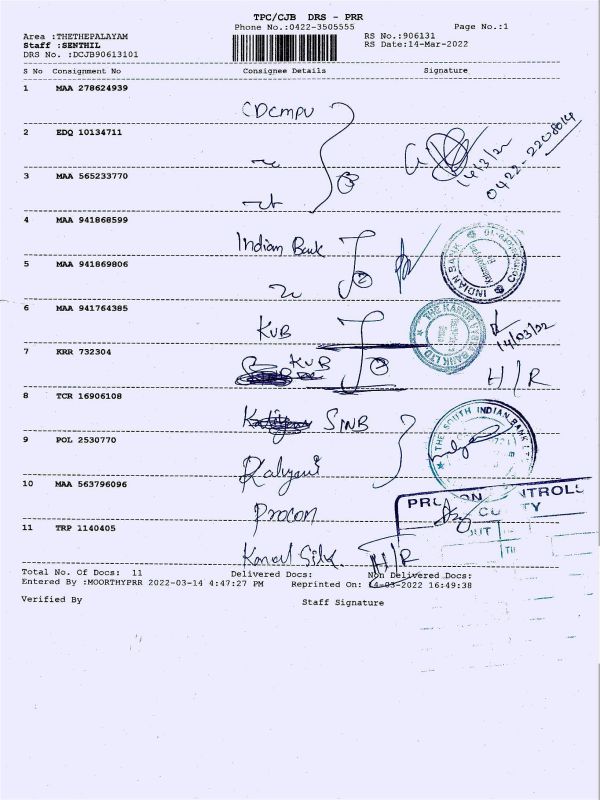 TPC/CJB DRS - PRR
Phone No.:0422-3505555 Page No.:1
Area :THETHEPALAYAM RS No.:906131
Staff :SENTHIL RS Date:14-Mar-2022
DRS No. :DCJB90613101
S No Consignment No Consignee Details Signature
1 MAA 278624939
CDCMPU
2 EDQ 10134711
14/3/22
0422-2208014
3 MAA 565233770
3
4 MAA 941868599
Indian Bank
INDIAN BANK
5 MAA 941869806
2
6 MAA 941764385
KVB
THE KARUR VYSYA BANK LTD
14/03/22
7 KRR 732304
KVB
2
H/R
8 TCR 16906108
SINB
THE SOUTH INDIAN BANK LTD
9 POL 2530770
Kalyani
10 MAA 563796096
Procon
11 TRP 1140405
H/R
Total No. Of Docs: 11 Delivered Docs: Non Delivered Docs:
Entered By :MOORTHYPRR 2022-03-14 4:47:27 PM Reprinted On: 14-03-2022 16:49:38
Verified By Staff Signature